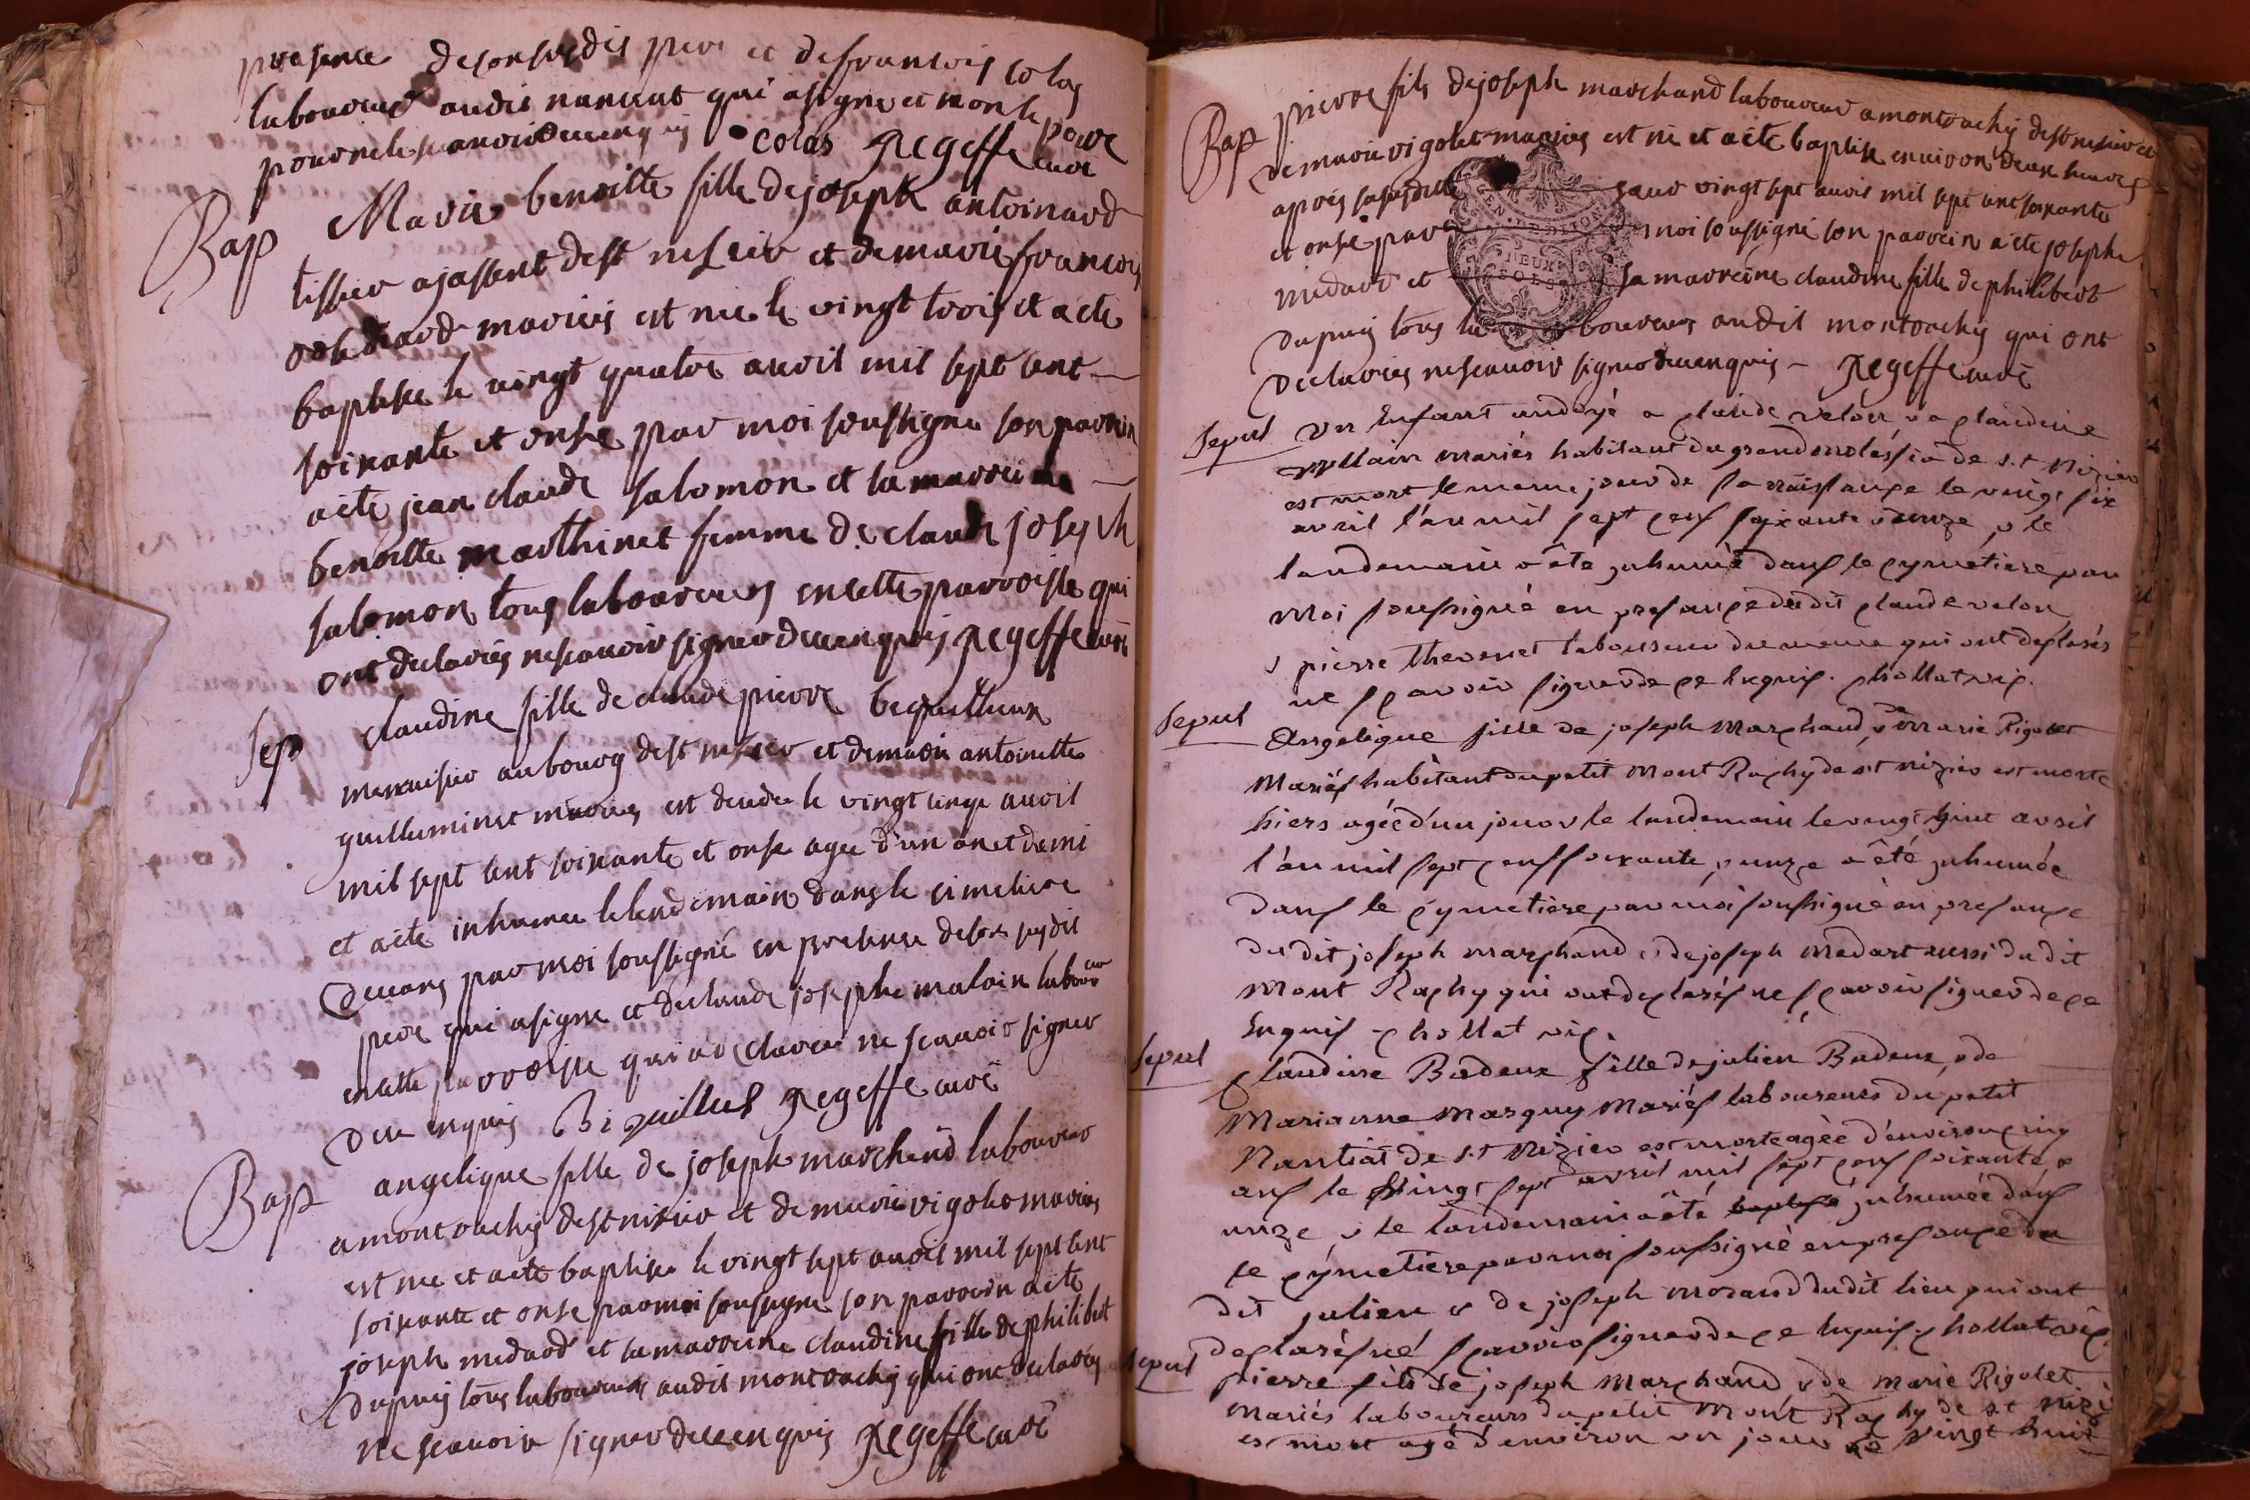 presence de son susdit pere et de francois colas
laboureur audit nancuat qui a signe et non le pere
pour ne le scavoir de ce enquis colas Regeffe curé
Bap Marie benoitte fille de joseph antoinard
tissier a jassent de st nisier et de marie francois
mariés est nee le vingt trois et a ete
baptisee le vingt quatre avril mil sept cent
soixante et onse par moi soussigne son parrein
a ete jean claude salomon et la marreine
benoitte marthinet femme de claude joseph
salomon tous laboureurs en cette parroisse qui
ont declarés ne scavoir signer de ce enquis Regeffe curé
Sep claudine fille de claude pierre bequilleux
menuisier au bourg de st nisier et de marie antoinette
guilleminet mariés est decedee le vingt cinq avril
mil sept cent soixante et onse agee d'un an et demi
et a ete inhumee le lendemain dans le cimetiere
de ceans par moi soussigné en presence de son susdit
pere qui a signe et de claude joseph malain laboureur
en cette parroisse qui a declaré ne scavoir signer
de ce enquis Regeffe curé
Bap angelique fille de joseph marchand laboureur
a montrachy de st nisier et de marie rigolet mariés
est nee et a ete baptisee le vingt sept avril mil sept cent
soixante et onse par moi soussigne son parrein a ete
joseph medard et la marreine claudine fille de philibert
dupuis tous laboureurs audit montrachy qui ont declarés
ne scavoir signer de ce enquis Regeffe curé
Bap pierre fils de joseph marchand laboureur a montrachy de st nisier et
de marie rigolet mariés est né et a ete baptisé environ deux heures
apres sa susditte sœur vingt sept avril mil sept cent soixante
et onse par moi soussigné son parrein a ete joseph
medard et sa marreine claudine fille de philibert
dupuis tous laboureurs audit montrachy qui ont
declarés ne scavoir signer de ce enquis Regeffe curé
EN EDITION
DEUX
SOLS
Sepul Un Enfant andoyé a claude velon & a claudine
mariés habitant du grand de s.t Nizier
est mort le meme jour de sa naissance le vingt six
avril l'an mil sept cens soixante & unze, & le
landemain a été inhumé dans le cymetiere par
moi soussigné en presance du dit claude velon
& pierre thevenet laboureur du meme qui ont declarés
ne scavoir signer de ce Enquis. chollat vic.
Sepul Angelique fille de joseph Marchand & de marie Rigolet
Mariés habitant du petit Mont Rachy de st nizier est morte
hiers agée d'un jour & le landemain le vingt huit avril
l'an mil sept cens soixante & unze a été inhumée
dans le cymetiere par moi soussigné en presance
du dit joseph marchand & de joseph medart aussi du dit
Mont Rachy qui ont declarés ne scavoir signer de ce
Enquis chollat vic.
Sepul claudine Badoux fille de julien Badoux & de
Marianne Marguy Mariés laboureurs du petit
Nantiat de s.t Nizier est morte agée d'environ cinq
ans le vingt sept avril mil sept cens soixante &
unze & le landemain a été baptisé inhumée dans
le cymetiere par moi soussigné en presance du
dit julien & de joseph morand dudit lieu qui ont
declarés né scavoir signer de ce enquis chollat vic.
Sepul pierre fils de joseph Marchand & de marie Rigolet
mariés laboureurs du petit Mont Rachy de st nizier
est mort agé d'environ un jour le vingt huit